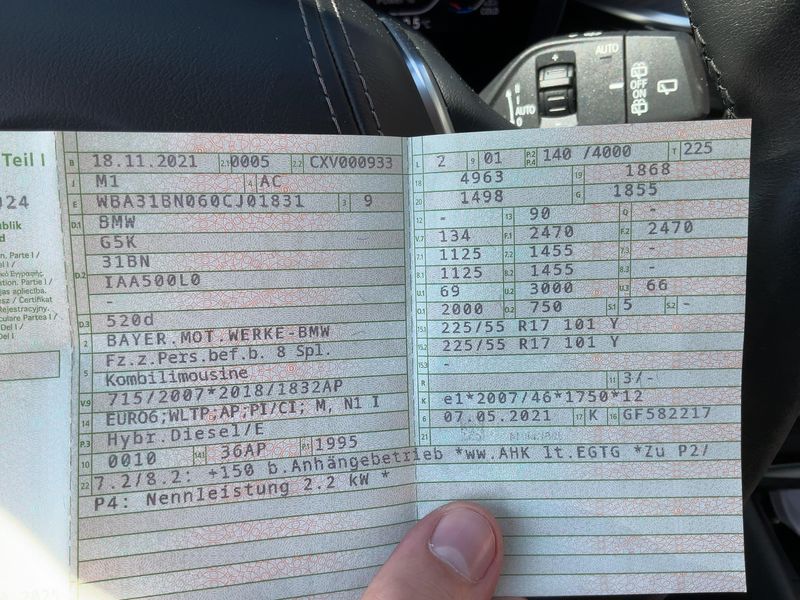 Teil I
024
ublik
d
on. Parte I /
el I /
κό Εγγραφής
ation. Partie I /
ijas apliecība.
ész / Certifikat
Rejestracyjny.
culare Partea I /
Del I /
Del I
B 18.11.2021 2.1 0005 2.2 CXV000933
J M1 4 AC
E WBA31BN060CJ01831 3 9
D.1 BMW
D.2 G5K
31BN
IAA500L0
-
D.3 520d
2 BAYER.MOT.WERKE-BMW
5 Fz.z.Pers.bef.b. 8 Spl.
Kombilimousine
V.9 715/2007*2018/1832AP
14 EURO6;WLTP;AP;PI/CI; M, N1 I
P.3 Hybr.Diesel/E
10 0010 14.1 36AP P.1 1995
22 7.2/8.2: +150 b.Anhängebetrieb *ww.AHK lt.EGTG *Zu P2/
P4: Nennleistung 2.2 kW *
L 2 9 01 P.2 P.4 140 /4000 T 225
18 4963 19 1868
20 1498 G 1855
12 - 13 90 Q -
V.7 134 F.1 2470 F.2 2470
7.1 1125 7.2 1455 7.3 -
8.1 1125 8.2 1455 8.3 -
U.1 69 U.2 3000 U.3 66
O.1 2000 O.2 750 S.1 5 S.2 -
15.1 225/55 R17 101 Y
15.2 225/55 R17 101 Y
15.3 -
R 11 3/-
K e1*2007/46*1750*12
6 07.05.2021 17 K 16 GF582217
21
AUTO
OFF
ON
AUTO